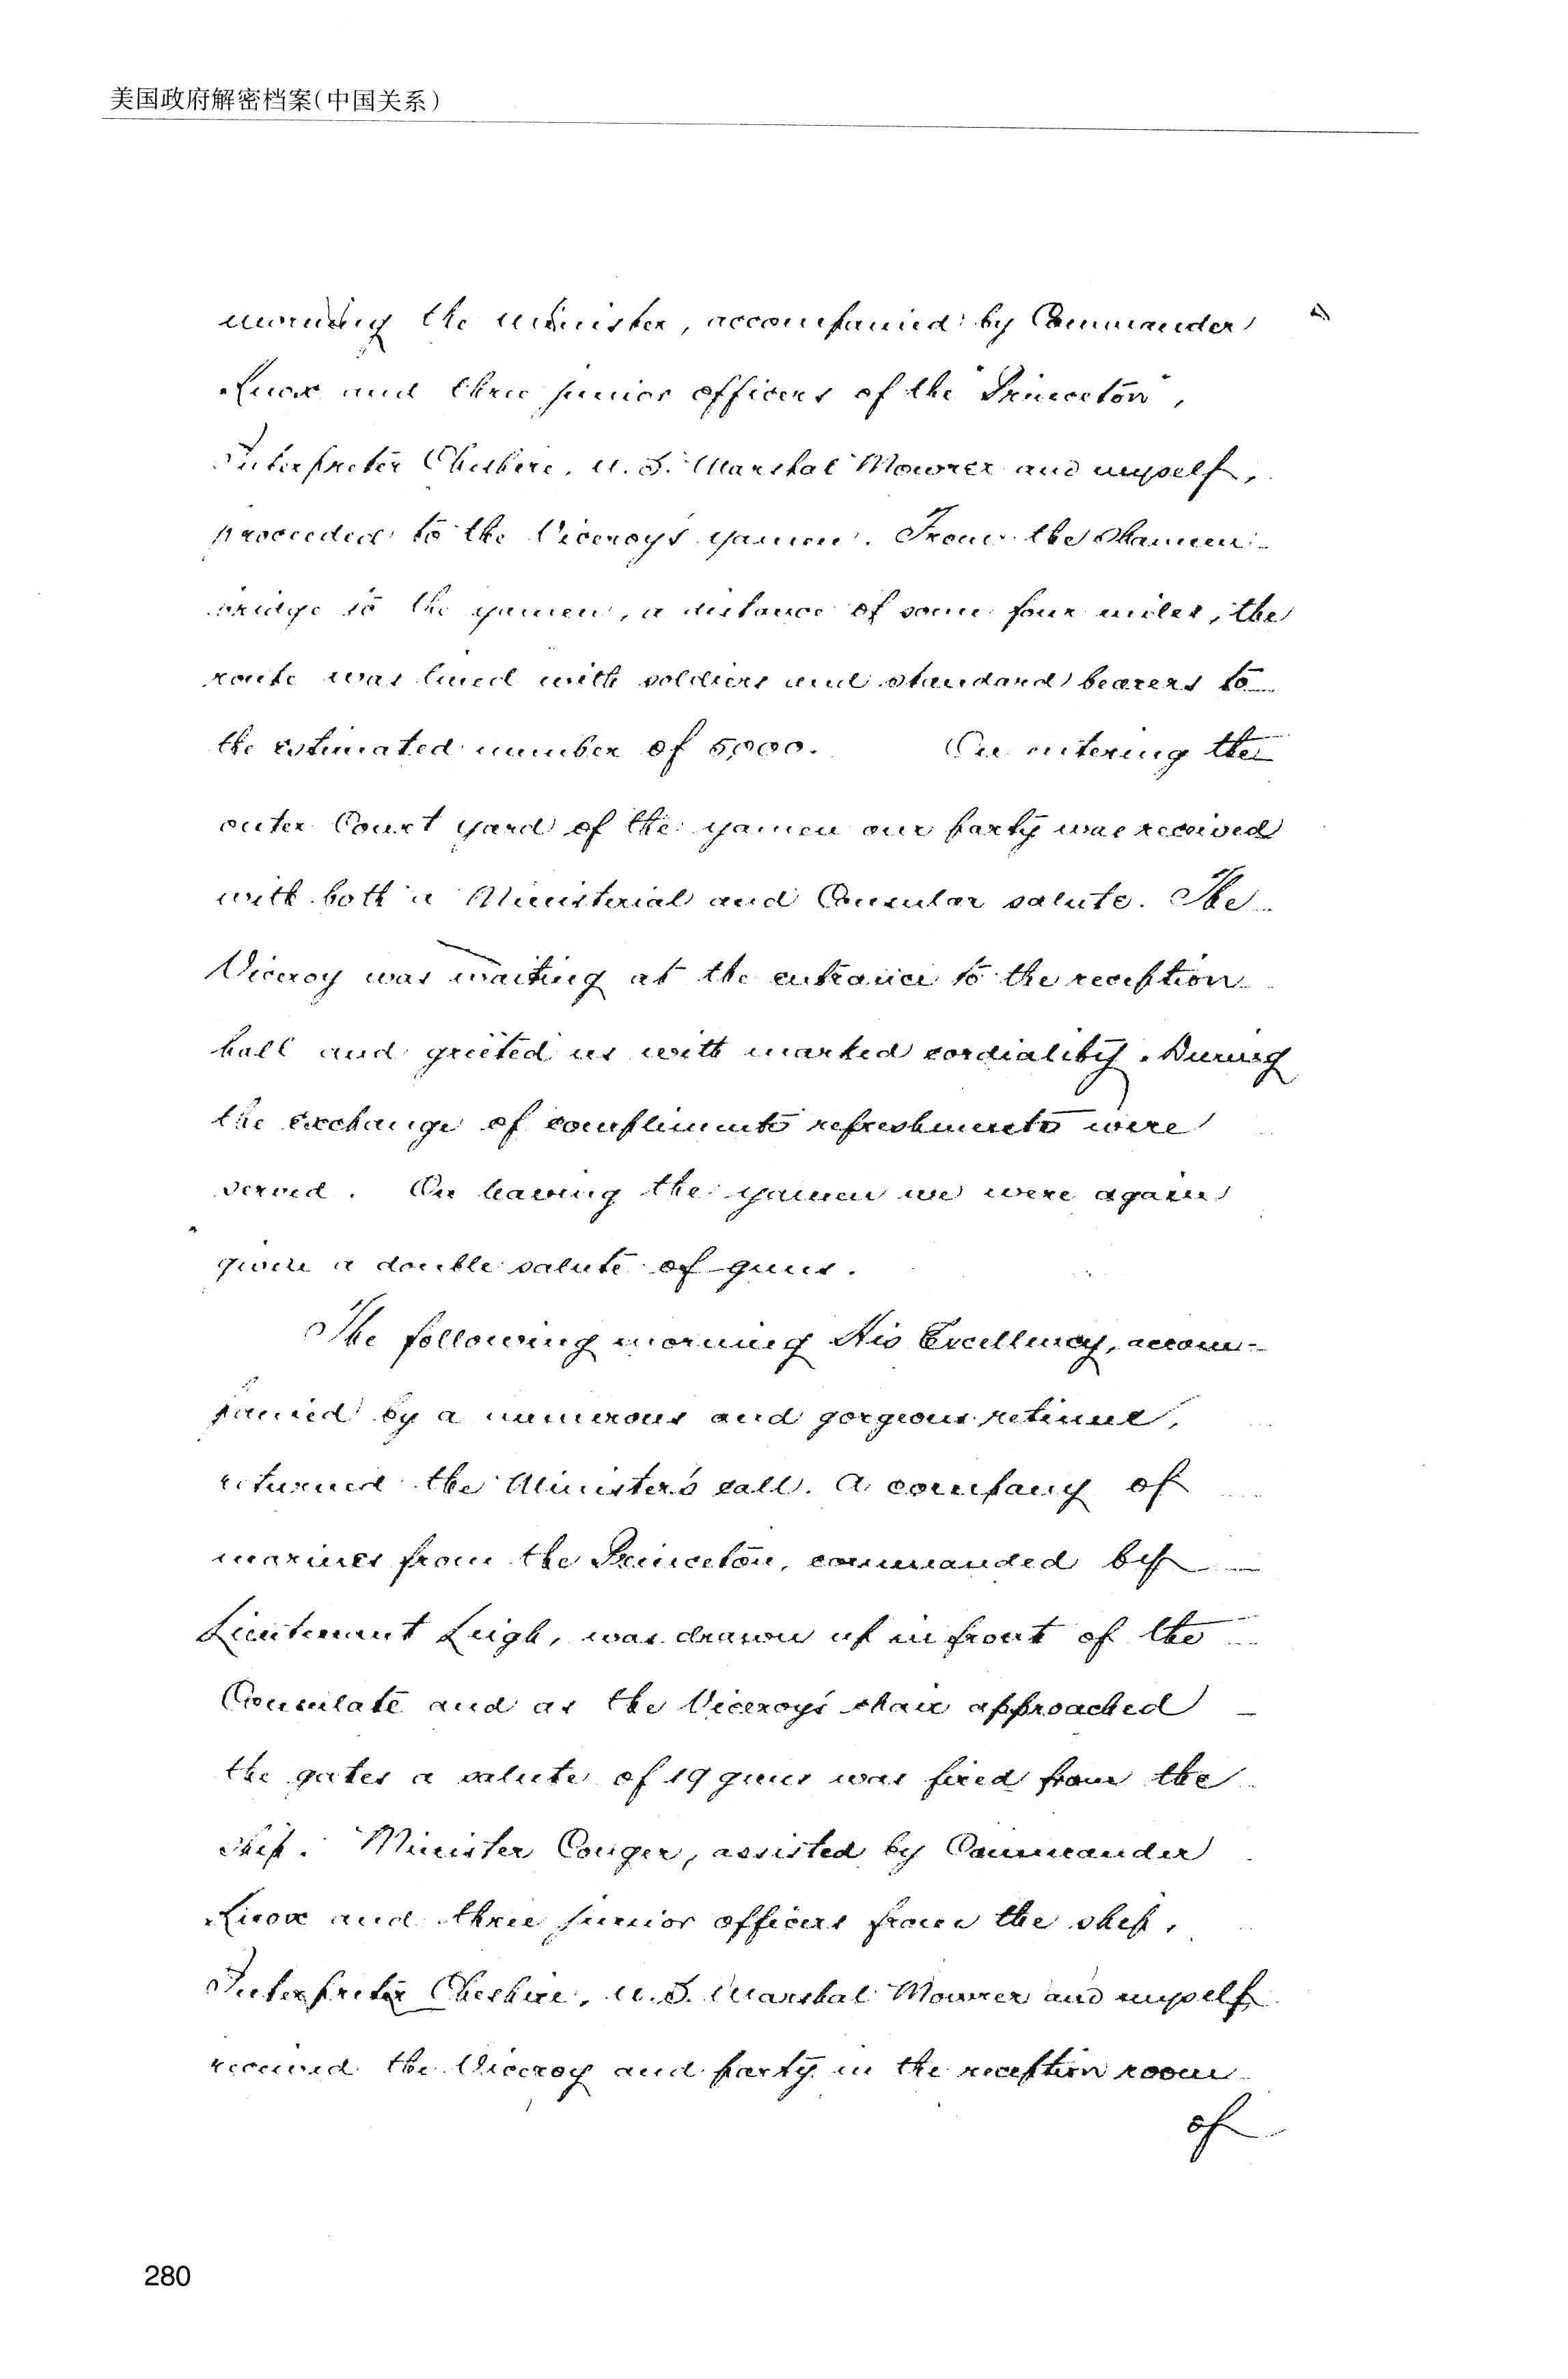 美国政府解密档案(中国关系)
morning the minister, accompanied by Commander
Knox and three junior officers of the "Princeton",
Interpreter Cheshire, U.S. Marshal Mowrer and myself,
proceeded to the Viceroy's yamen. From the
bridge to the yamen, a distance of some four miles, the
route was lined with soldiers and standard bearers to
the estimated number of 5,000. On entering the
outer Court yard of the yamen our party was received
with both a Ministerial and Consular salute. The
Viceroy was waiting at the entrance to the reception
hall and greeted us with marked cordiality. During
the exchange of compliments refreshments were
served. On leaving the yamen we were again
given a double salute of guns.
The following morning His Excellency, accom-
panied by a numerous and gorgeous retinue,
returned the Minister's call. A company of
marines from the Princeton, commanded by
Lieutenant Leigh, was drawn up in front of the
Consulate and as the Viceroy's chair approached
the gates a salute of 19 guns was fired from the
ship. Minister Conger, assisted by Commander
Knox and three junior officers from the ship,
Interpreter Cheshire, U.S. Marshal Mowrer and myself
received the Viceroy and party in the reception room
of
280